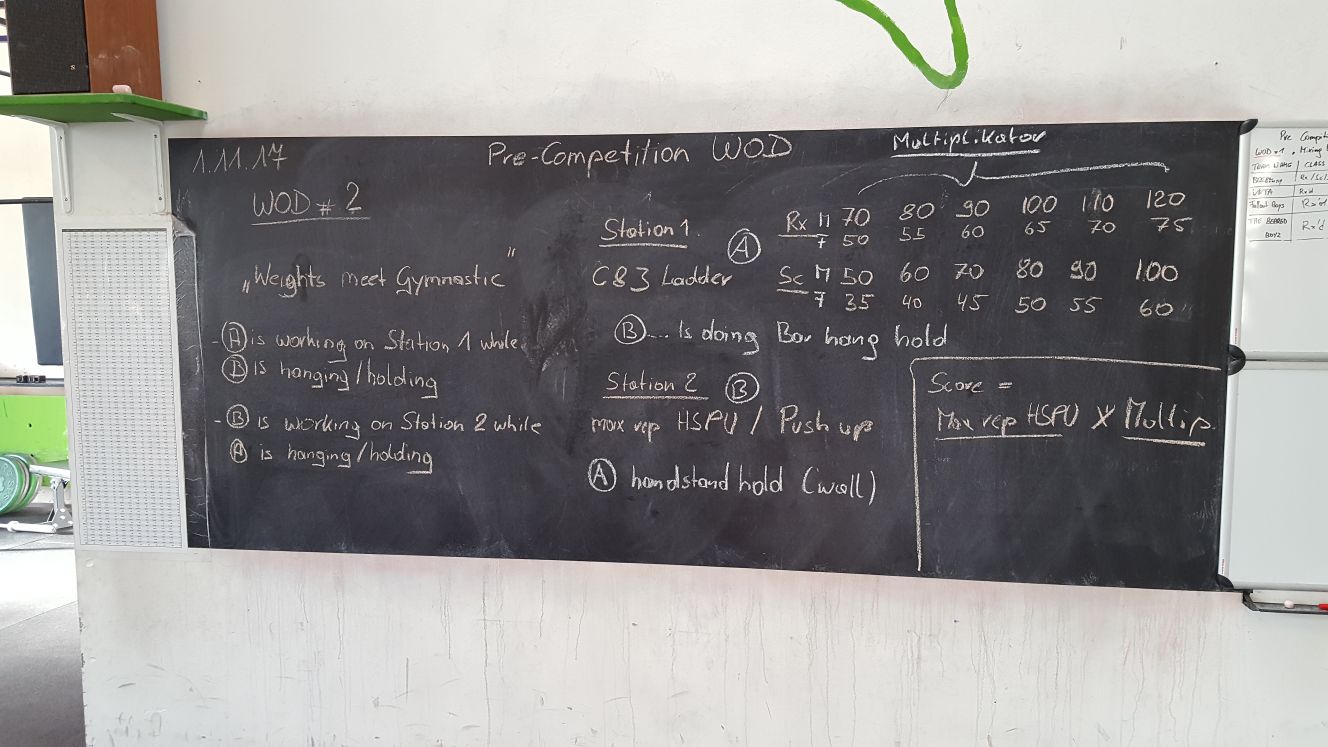 1.11.17
Pre-Competition WOD
WOD # 2
„Weights meet Gymnastic"
- Ⓐ is working on Station 1 while
Ⓑ is hanging/holding
- Ⓑ is working on Station 2 while
Ⓐ is hanging/holding
Station 1. Ⓐ
C&J Ladder
Multiplikator
Rx M 70 80 90 100 110 120
F 50 55 60 65 70 75
Sc M 50 60 70 80 90 100
F 35 40 45 50 55 60
Ⓑ... Is doing Bar hang hold
Station 2 Ⓑ
max rep HSPU / Push up
Ⓐ handstand hold (wall)
Score =
Max rep HSPU X Multip.
Pre
WOD #1
TEAM NAME | CLASS
Rx'd
Fallout Boys Rx'd
THE BEARED BOYZ Rx'd